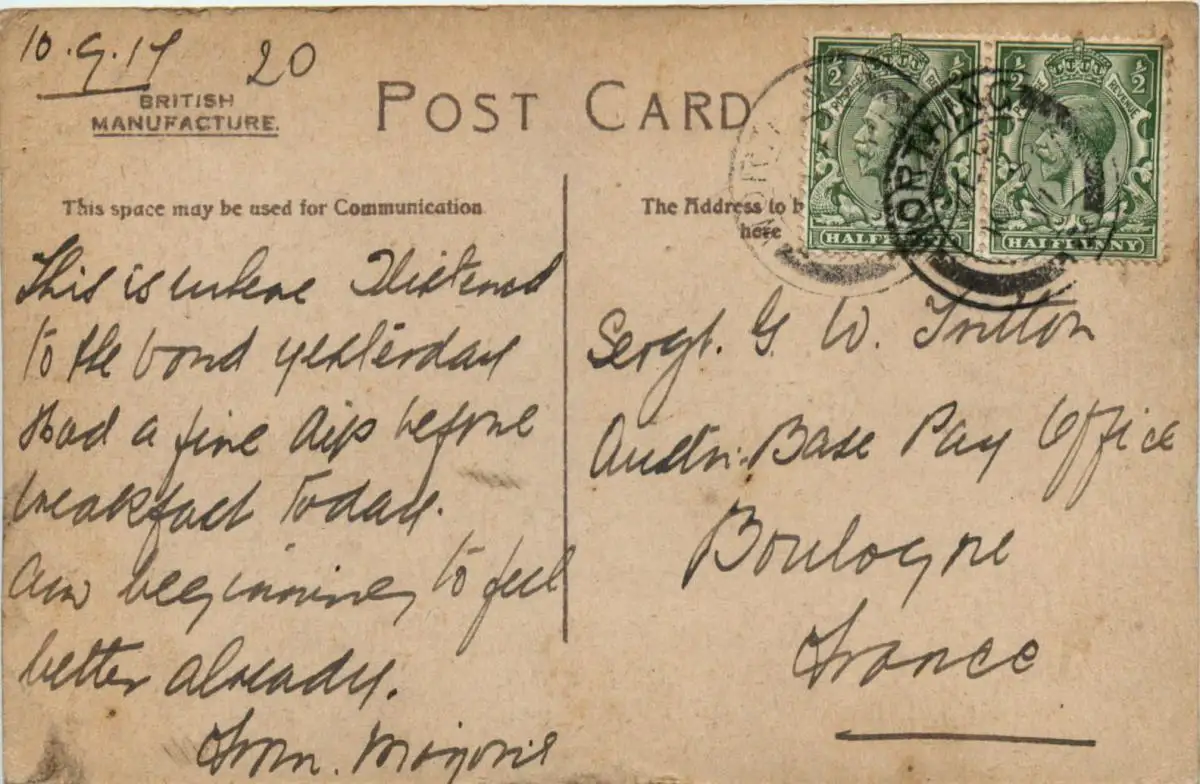 10.9.17 20
BRITISH
MANUFACTURE.
POST CARD
This space may be used for Communication
The Address to b
here
½ ½
POSTAGE REVENUE
HALFPENNY
½ ½
REVENUE
HALFPENNY
WORTHING
This is where I listened
to the band yesterday
Had a fine dip before
breakfast today.
Am beginning to feel
better already.
From. Marjorie
Sergt. G. W. Tritton
Austn. Base Pay Office
Boulogne
France